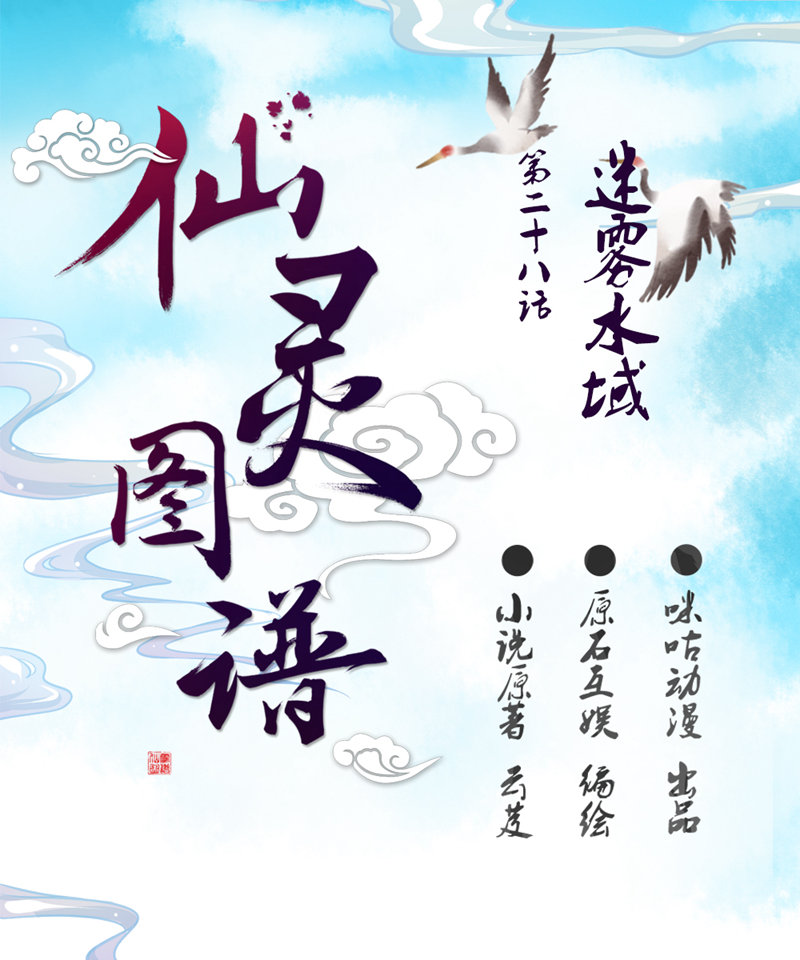 仙灵图谱
迷雾水域
第二十八话
咪咕动漫 出品
原石互娱 编绘
小说原著 云芨